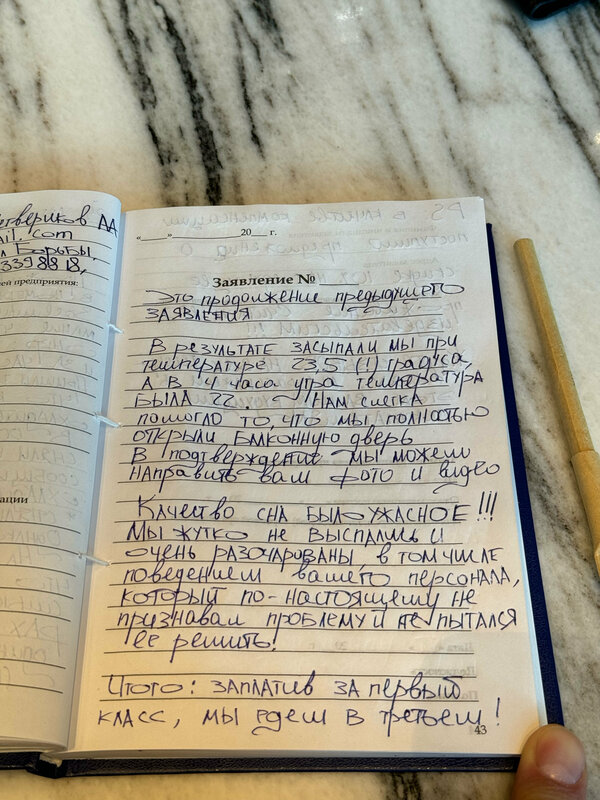 етвериков АА
ail.com
л Борьбы,
3398818,
ей предприятия:
ации
«____» ____________ 20___ г.
Заявление №
Это продолжение предыдущего
заявления.
В результате засыпали мы при
температуре 23,5 (!) градуса,
а в 4 часа утра температура
была 22. Нам слегка
помогло то, что мы полностью
открыли балконную дверь
В подтверждение мы можем
направить вам фото и видео
Качество сна было ужасное!!!
Мы жутко не выспались и
очень разочарованы, в том числе
поведением вашего персонала,
который по-настоящему не
признавал проблему и не пытался
её решить!
Итого: заплатив за первый
класс, мы едем в третьем!
43